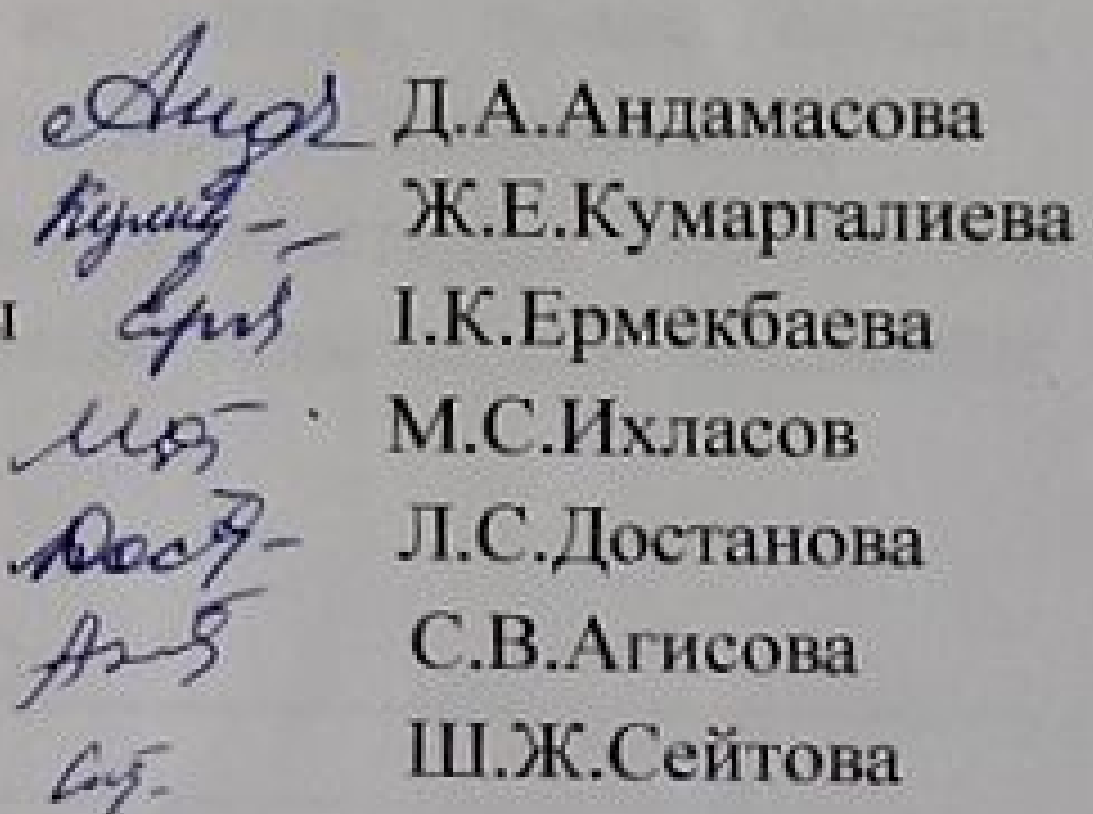 Д.А.Андамасова
Ж.Е.Кумаргалиева
І.К.Ермекбаева
М.С.Ихласов
Л.С.Достанова
С.В.Агисова
Ш.Ж.Сейтова